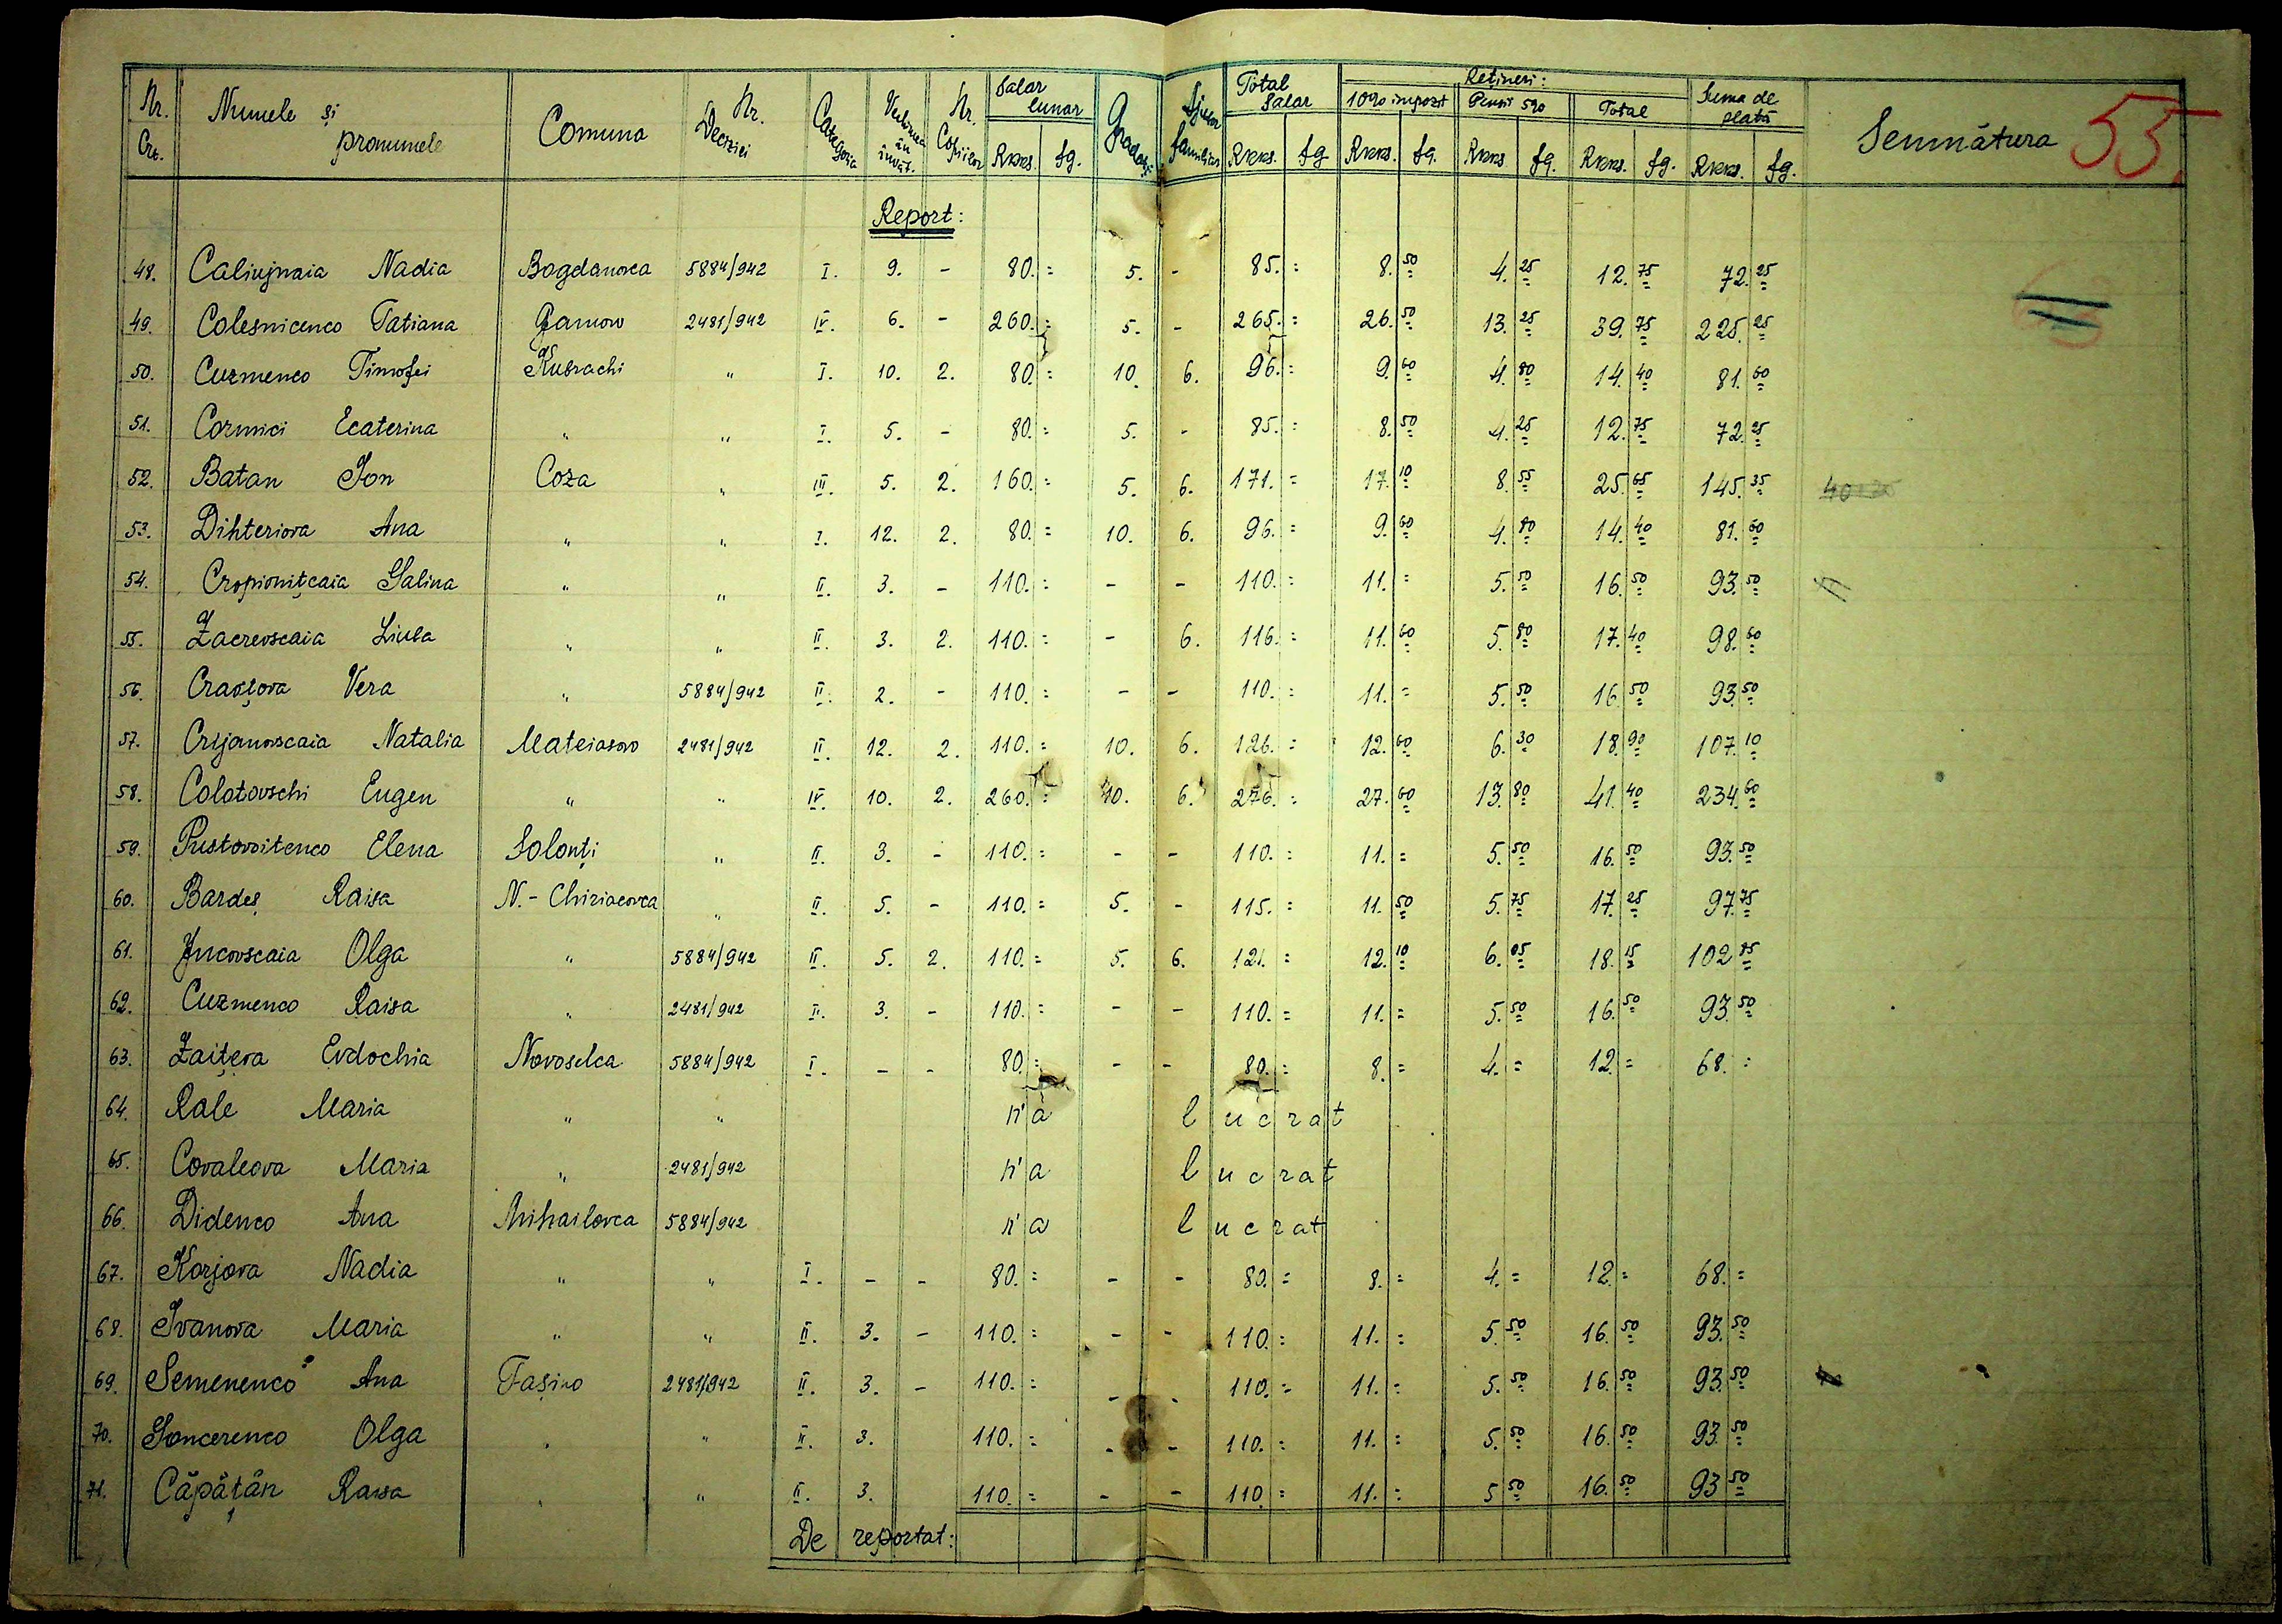 Nr. Crt. Numele și pronumele Comuna Nr. Deciziei Categoria Vechimea în învăț. Nr. Copiilor Salar lunar Rkks. fg. Gradații Ajutor familiar Total Salar Rkks. fg Rețineri: 10% impozit Rkks. fg. Pensii 5% Rkks. fg. Total Rkks. fg. Suma de plată Rkks. fg. Semnătura 55.
Report:
48. Caliujnaia Nadia Bogdanovca 5884/942 I. 9. - 80. = 5. - 85. = 8. 50 4. 25 12. 75 72. 25
49. Colesnicenco Tatiana Gamow 2481/942 IV. 6. - 260. = 5. - 265. = 26. 50 13. 25 39. 75 225. 25
50. Cuzmenco Timofei Kubrachi " I. 10. 2. 80. = 10. 6. 96. = 9. 60 4. 80 14. 40 81. 60
51. Cozmici Ecaterina " " I. 5. - 80. = 5. - 85. = 8. 50 4. 25 12. 75 72. 25
52. Batan Ion Coza " III. 5. 2. 160. = 5. 6. 171. = 17. 10 8. 55 25. 65 145. 35
53. Dihteriova Ana " " I. 12. 2. 80. = 10. 6. 96. = 9. 60 4. 80 14. 40 81. 60
54. Cropionițcaia Galina " " II. 3. - 110. = - - 110. = 11. = 5. 50 16. 50 93. 50
55. Zacrevscaia Liuba " " II. 3. 2. 110. = - 6. 116. = 11. 60 5. 80 17. 40 98. 60
56. Vera " 5884/942 II. 2. - 110. = - - 110. = 11. = 5. 50 16. 50 93. 50
57. Crijanovscaia Natalia Mateiasovo 2481/942 II. 12. 2. 110. = 10. 6. 126. = 12. 60 6. 30 18. 90 107. 10
58. Colotovschi Eugen " " IV. 10. 2. 260. = 10. 6. 276. = 27. 60 13. 80 41. 40 234. 60
59. Pustovoitenco Elena Solonți " II. 3. - 110. = - - 110. = 11. = 5. 50 16. 50 93. 50
60. Bardeș Raisa N.-Chiriacovca " II. 5. - 110. = 5. - 115. = 11. 50 5. 75 17. 25 97. 75
61. Jucovscaia Olga " 5884/942 II. 5. 2. 110. = 5. 6. 121. = 12. 10 6. 05 18. 15 102 85
62. Cuzmenco Raisa " 2481/942 II. 3. - 110. = - - 110. = 11. = 5. 50 16. 50 93. 50
63. Zaițeva Evdochia Novoselca 5884/942 I. - - 80. = - - 80. = 8. = 4. = 12. = 68. =
64. Rale Maria " " n'a lucrat
65. Covaleova Maria " 2481/942 n'a lucrat
66. Didenco Ana Mihailovca 5884/942 n'a lucrat
67. Korjova Nadia " " I. - - 80. = - - 80. = 8. = 4. = 12. = 68. =
68. Ivanova Maria " " II. 3. - 110. = - - 110. = 11. = 5. 50 16. 50 93. 50
69. Semenenco Ana Fașino 2481/942 II. 3. - 110. = - - 110. = 11. = 5. 50 16. 50 93. 50
70. Goncerenco Olga " " II. 3. 110. = - - 110. = 11. = 5. 50 16. 50 93. 50
71. Căpățân Raisa " " II. 3. 110. = - - 110. = 11. = 5 50 16. 50 93 50
De reportat: